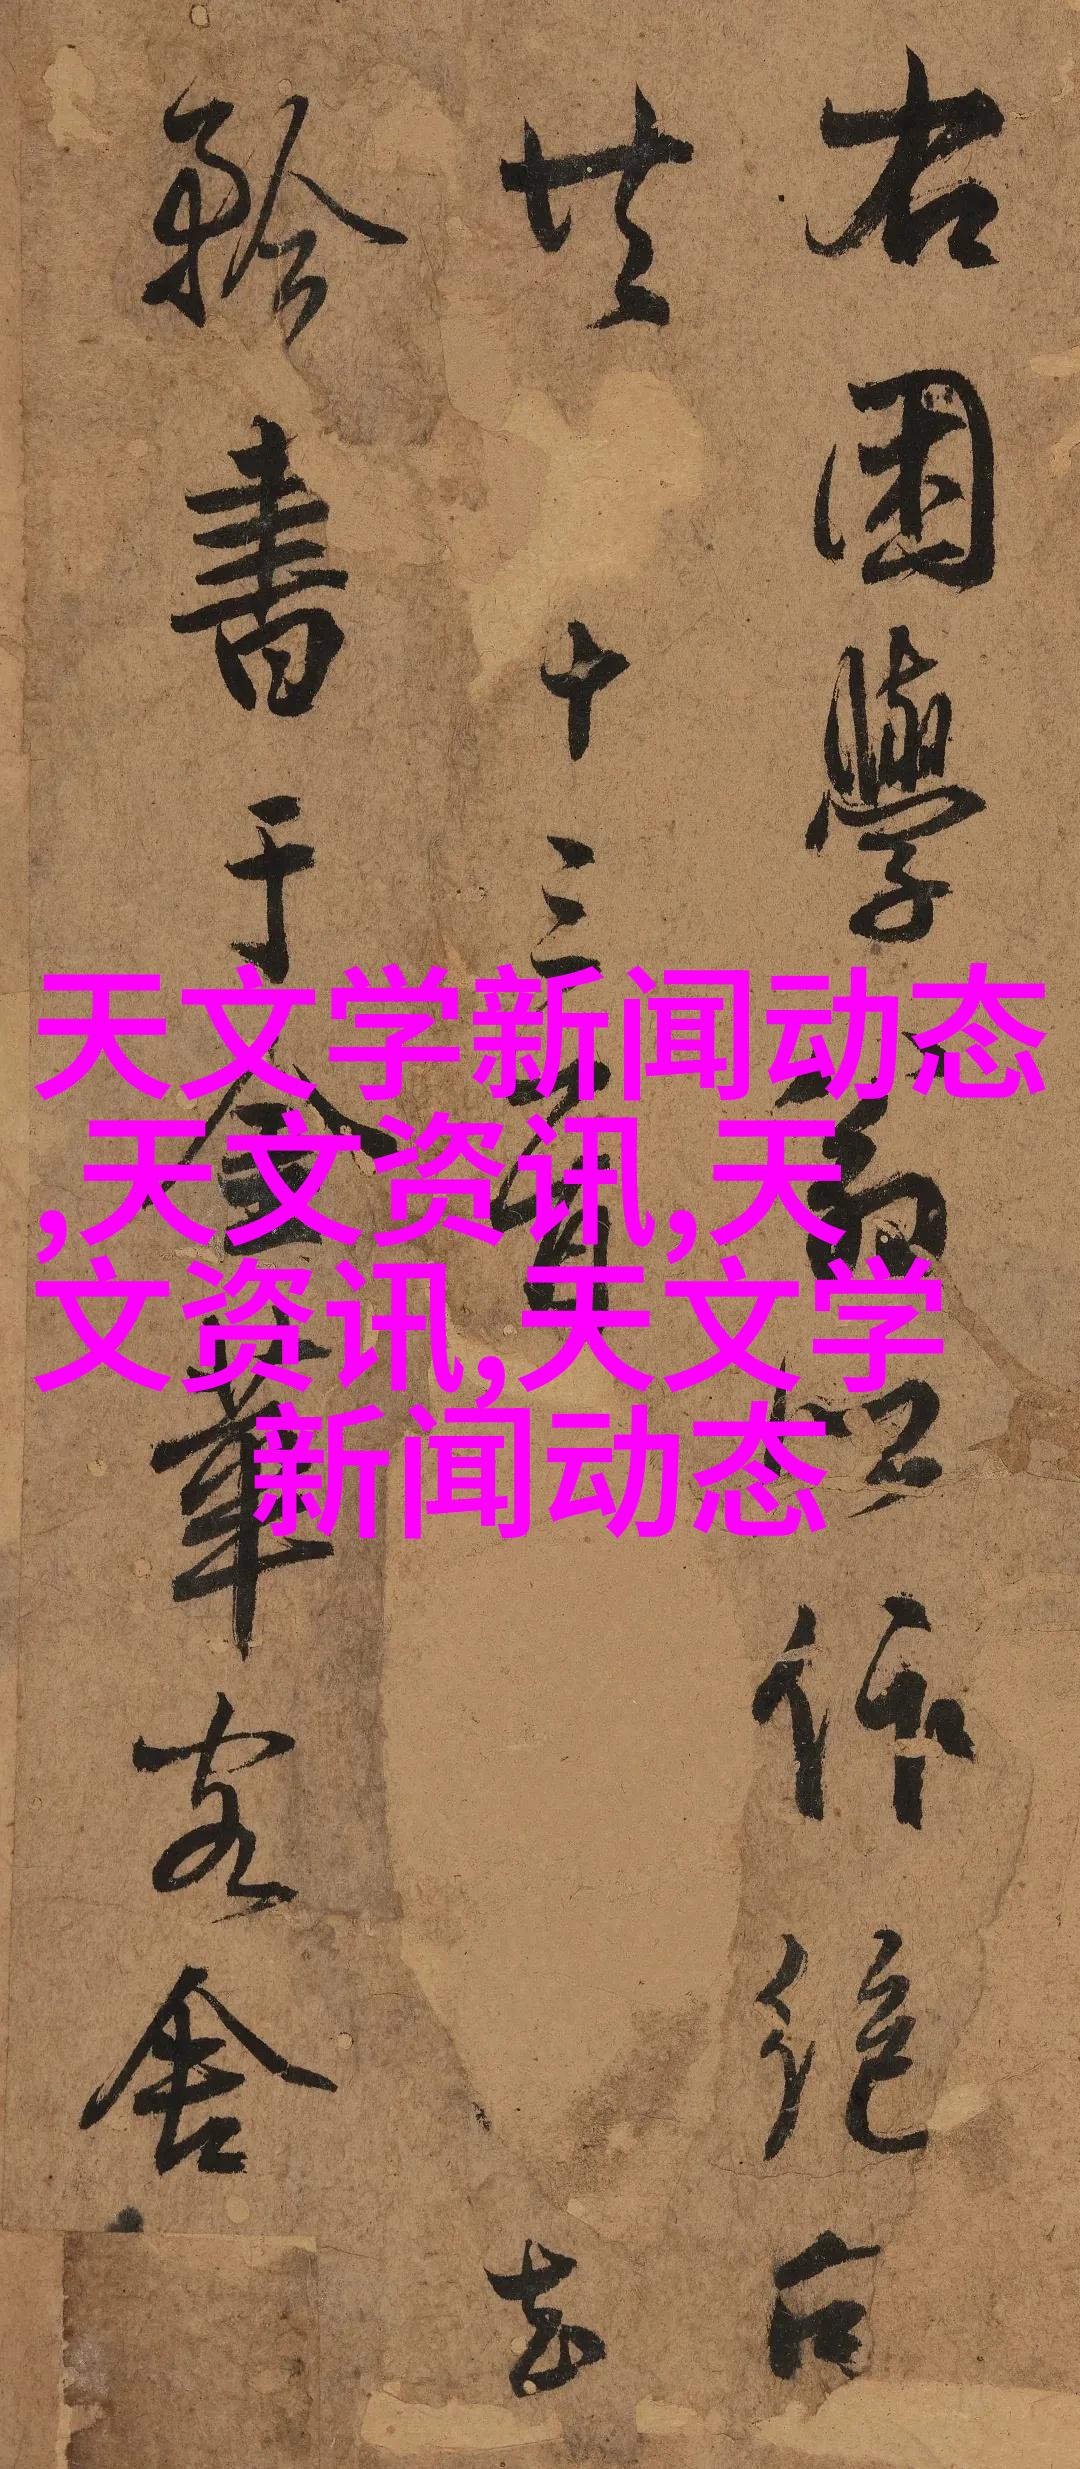 右困學作絕句
共十三首
書于金華客舍
天文学新闻动态
,天文资讯,天
文资讯,天文学
新闻动态